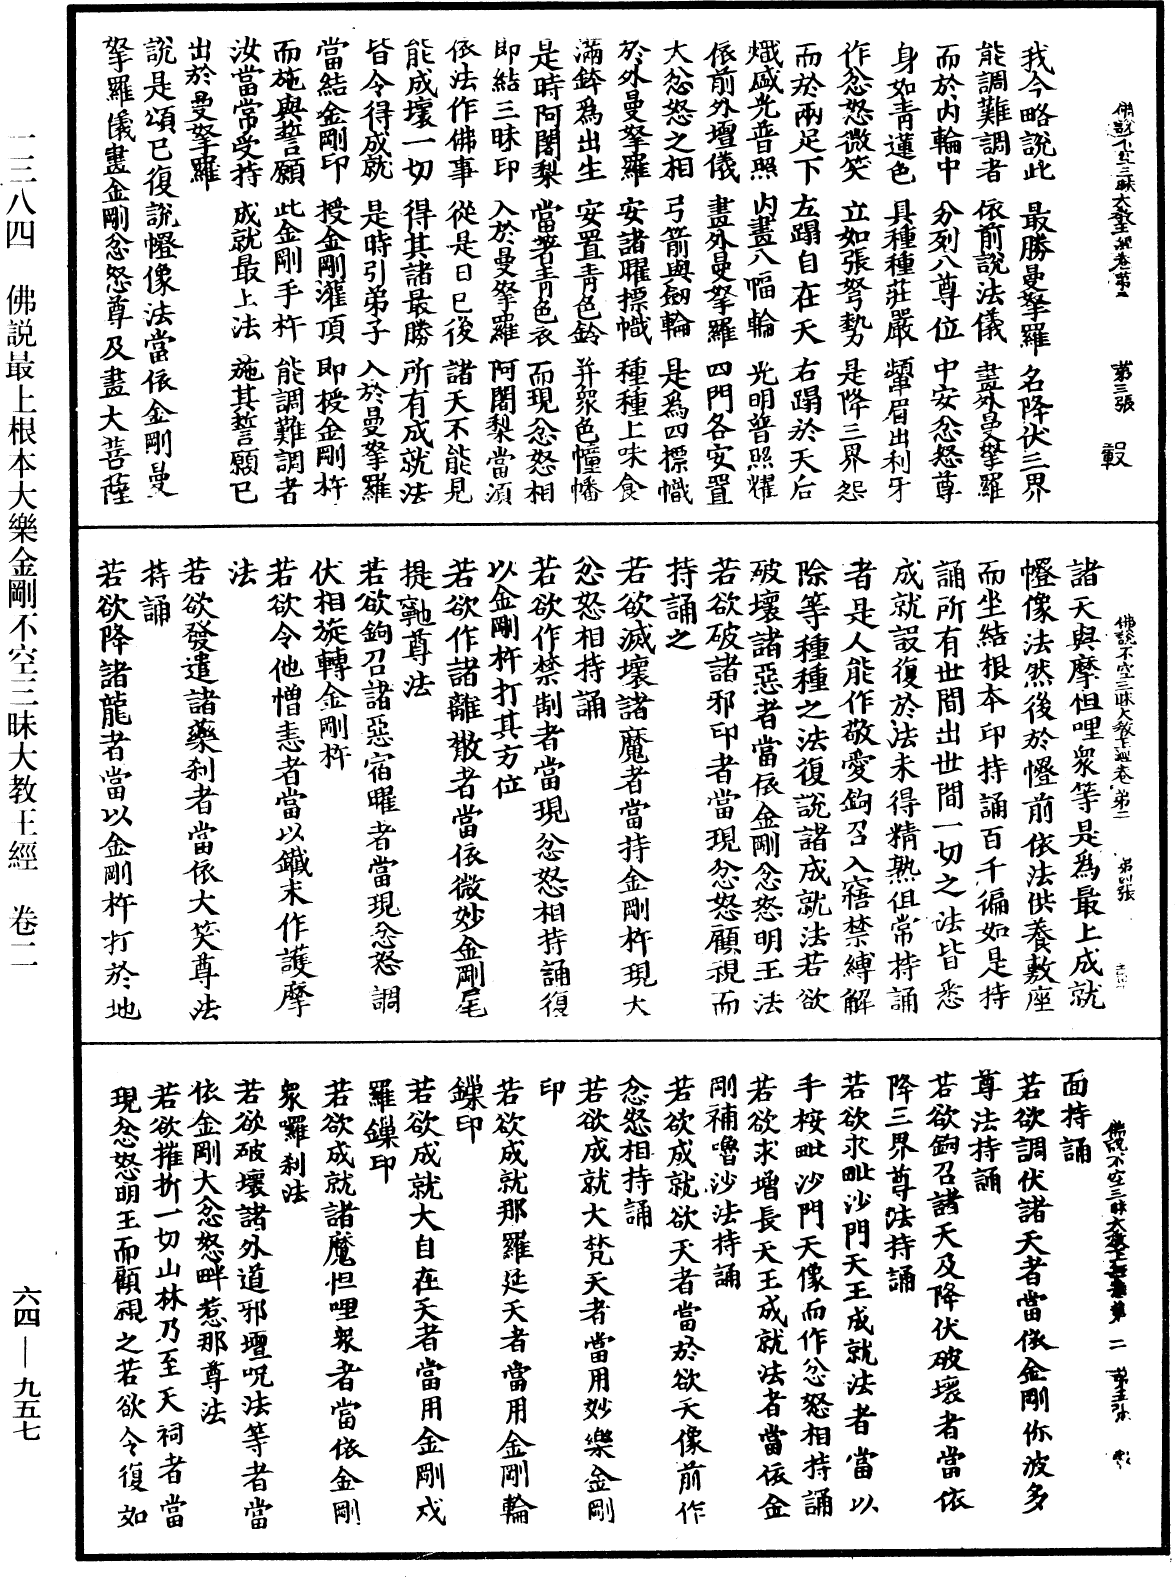 佛說不空三昧大教王經卷第二　第三張　穀
我今略說此　最勝曼拏羅　名降伏三界
能調難調者　依前說法儀　盡外曼拏羅
而於內輪中　分列八尊位　中安忿怒尊
身如青蓮色　具種種莊嚴　顰眉出利牙
作忿怒微笑　立如張弩勢　是降三界怨
而於兩足下　左蹋自在天　右蹋於天后
熾盛光普照　內畫八幅輪　光明普照耀
依前外壇儀　畫外曼拏羅　四門各安置
大忿怒之相　弓箭與劒輪　是為四摽幟
於外曼拏羅　安諸曜摽幟　種種上味食
滿鉢為出生　安置青色鈴　并衆色幢幡
是時阿闍梨　當著青色衣　而現忿怒相
即結三昧印　入於曼拏羅　阿闍梨當須
依法作佛事　從是日已後　諸天不能見
能成壞一切　得其諸最勝　所有成就法
皆令得成就　是時引弟子　入於曼拏羅
當結金剛印　授金剛灌頂　即授金剛杵
而施與誓願　此金剛手杵　能調難調者
汝當常受持　成就最上法　施其誓願已
出於曼拏羅
說是頌已復說㡧像法當依金剛曼
拏羅儀畫金剛忿怒尊及畫大菩薩
佛說不空三昧大教王經卷第二　第四張
諸天與摩怛哩衆等是為最上成就
㡧像法然後於㡧前依法供養敷座
而坐結根本印持誦百千徧如是持
誦所有世間出世間一切之法皆悉
成就設復於法未得精熟但常持誦
者是人能作敬愛鉤召入寤禁縛解
除等種種之法復說諸成就法若欲
破壞諸惡者當依金剛忿怒明王法
若欲破諸邪印者當現忿怒顧視而
持誦之
若欲滅壞諸魔者當持金剛杵現大
忿怒相持誦
若欲作禁制者當現忿怒相持誦復
以金剛杵打其方位
若欲作諸離散者當依微妙金剛尾
提𭄿尊法
若欲鉤召諸惡宿曜者當現忿怒調
伏相旋轉金剛杵
若欲令他憎恚者當以鐵末作護摩
法
若欲發遣諸藥刹者當依大笑尊法
持誦
若欲降諸龍者當以金剛杵打於地
佛說不空三昧大教王經卷第二　第五張
面持誦
若欲調伏諸天者當依金剛你波多
尊法持誦
若欲鉤召諸天及降伏破壞者當依
降三界尊法持誦
若欲求毗沙門天王成就法者當以
手桉毗沙門天像而作忿怒相持誦
若欲求增長天王成就法者當依金
剛補嚕沙法持誦
若欲成就欲天者當於欲天像前作
忿怒相持誦
若欲成就大梵天者當用妙樂金剛
印
若欲成就那羅延天者當用金剛輪
鏁印
若欲成就大自在天者當用金剛戍
羅鏁印
若欲成就諸魔怛哩衆者當依金剛
衆囉刹法
若欲破壞諸外道邪壇呪法等者當
依金剛大忿怒畔惹那尊法
若欲摧折一切山林乃至天祠者當
現忿怒明王而顧視之若欲令復如
一三八四　佛說最上根本大樂金剛不空三昧大教王經　卷二
六四—九五七